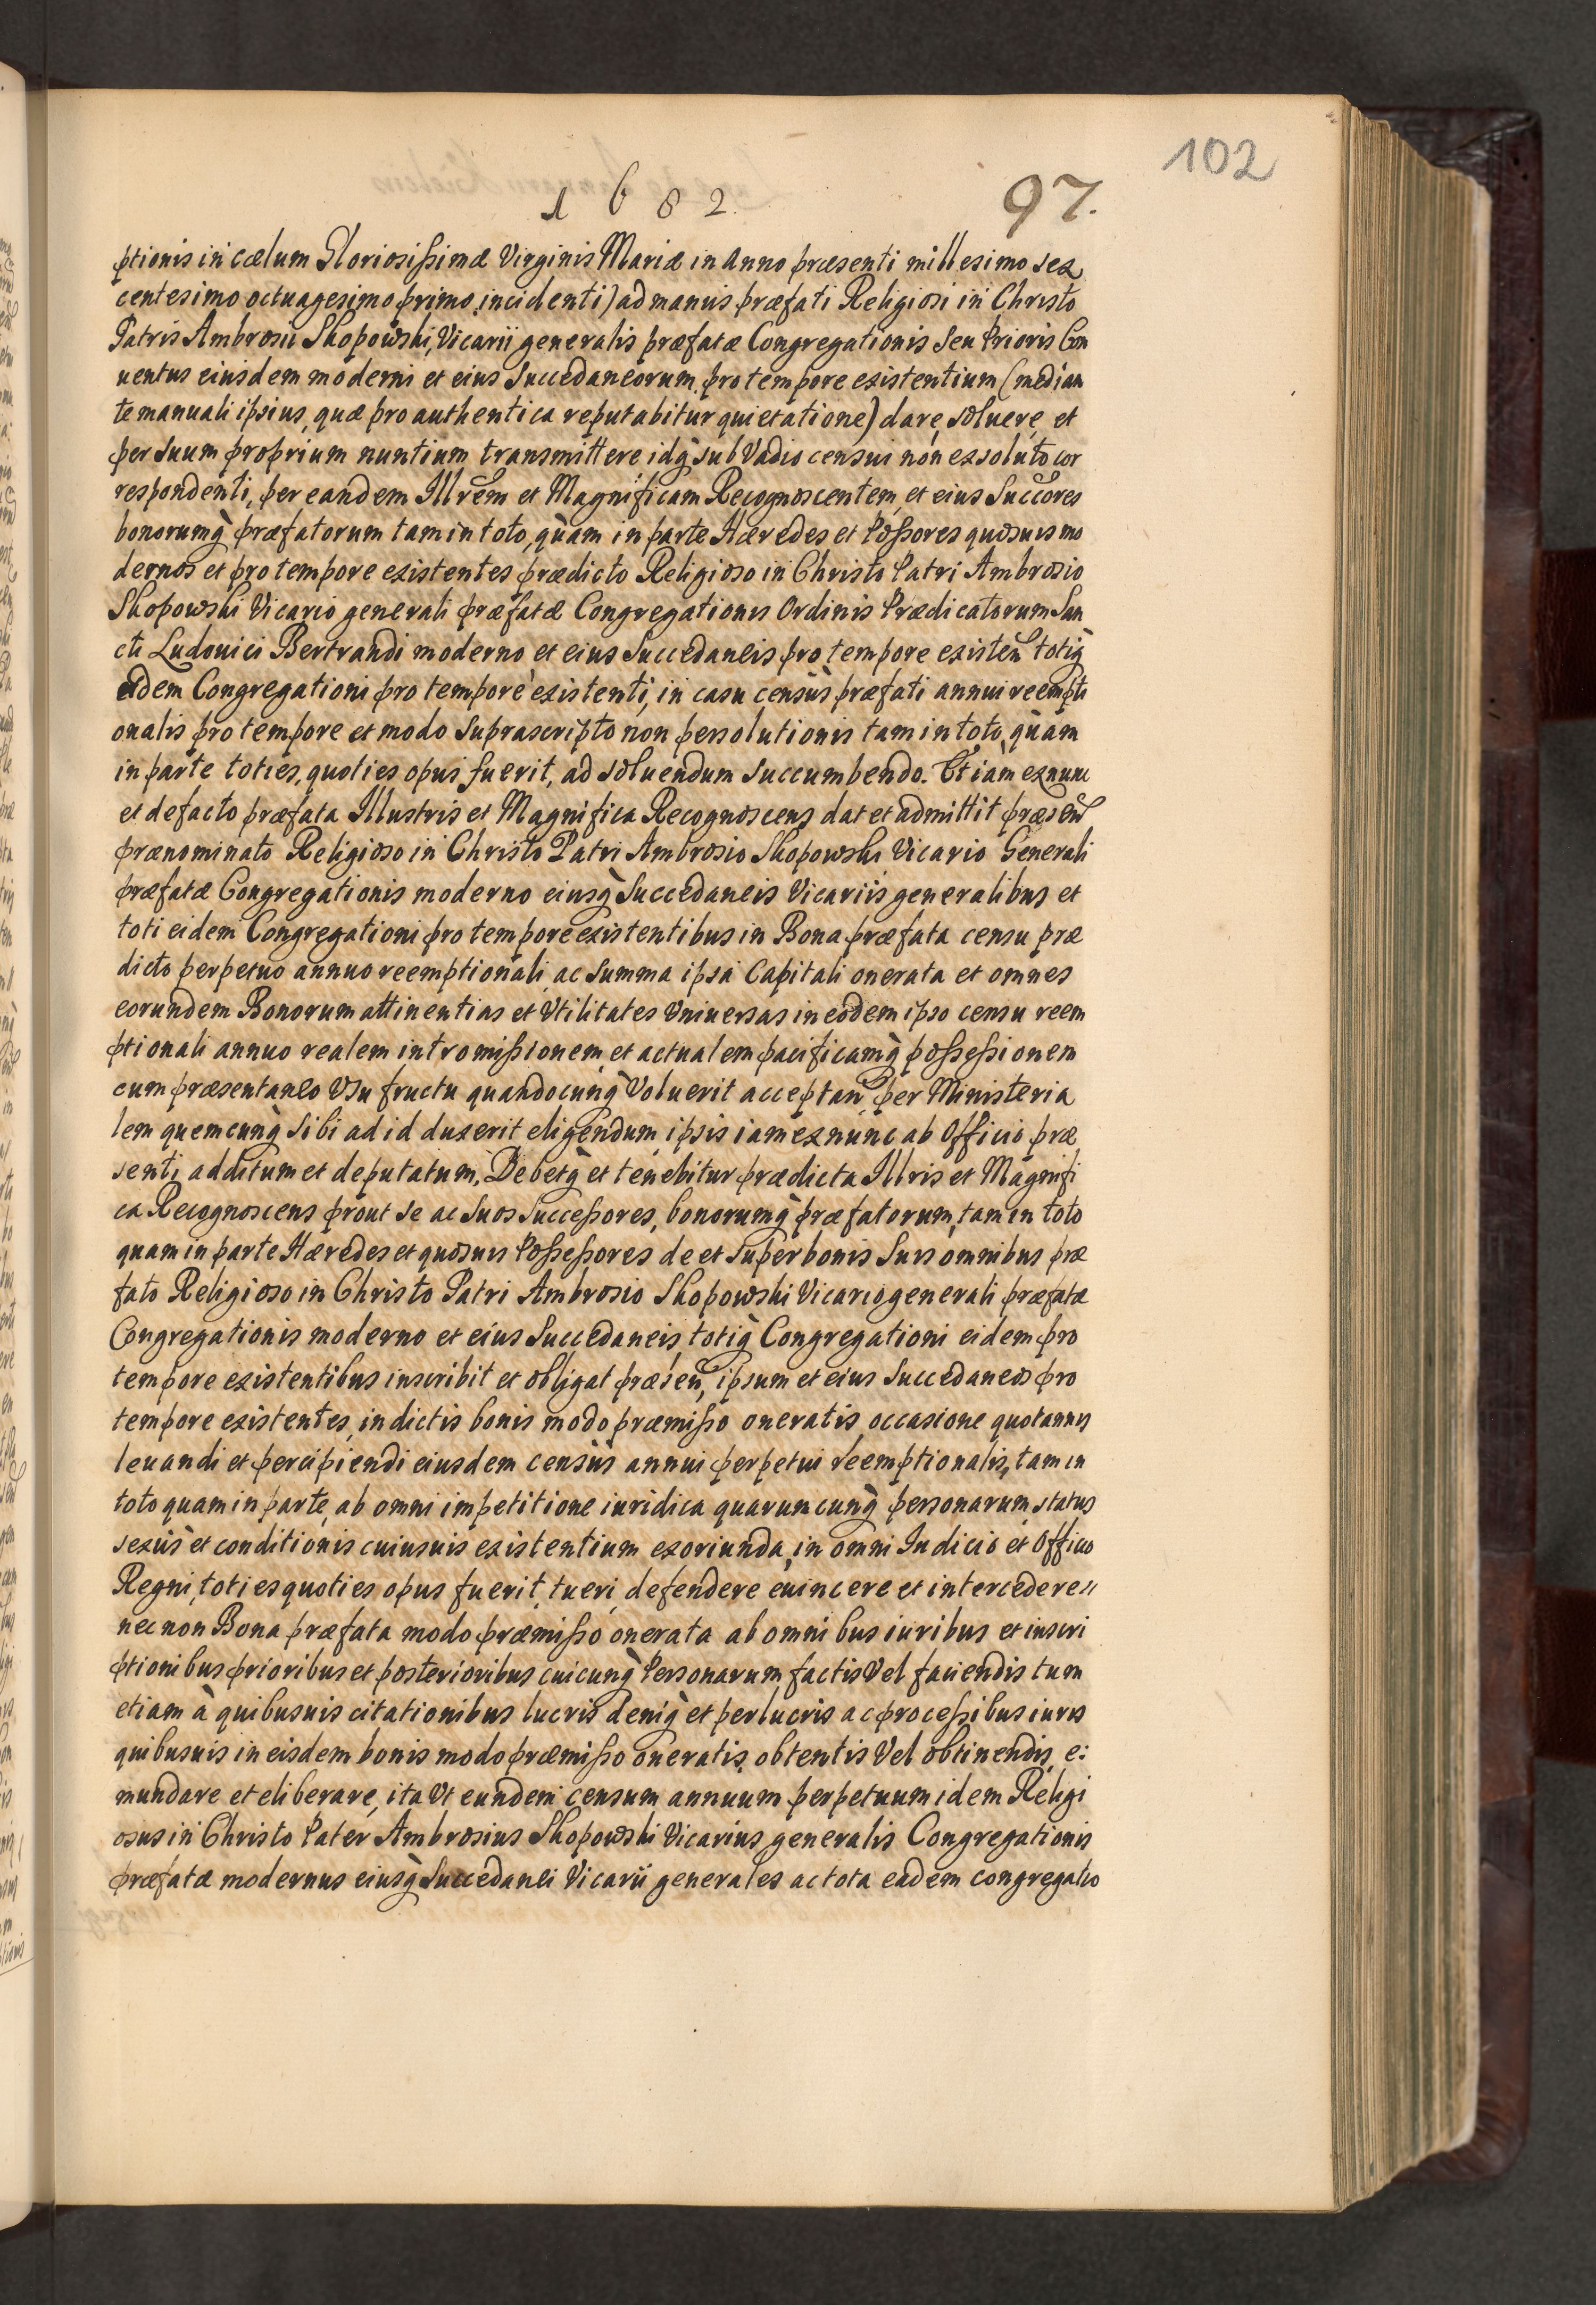 102
1 6 8 2.
97.
ptionis in cælum Gloriosißimæ Virginis Mariæ in Anno præsenti millesimo sex
centesimo octuagesimo primo incidenti) ad manus præfati Religiosi in Christo
Patris Ambrosii Skopowski, Vicarii generalis præfatæ Congregationis seu Prioris Con
uentus eiusdem moderni et eius Succedaneorum pro tempore existentium (median
te manuali ipsius, quæ pro authentica reputabitur quietatione) dare, soluere, et
per suum proprium nuntium transmittere idq̀ sub Vadio censui non exsoluto cor
respondenti, per eandem Illrem et Magnificam Recognoscentem, et eius Succores
bonorumq̀ præfatorum tam in toto, quàm in parte Hæredes et Poßores quosuis mo
dernos et pro tempore existentes prædicto Religioso in Christo Patri Ambrosio
Skopowski Vicario generali præfatæ Congregationis Ordinis Prædicatorum San
cti Ludouici Bertrandi moderno et eius Succedaneis pro tempore existen totiq̀
eidem Congregationi pro tempore existenti, in casu censùs præfati annui reempti
onalis pro tempore et modo suprascripto non persolutionis tam in toto, quàm
in parte toties, quoties opus fuerit, ad soluendum succumbendo. Et iam exnunc
et defacto præfata Illustris et Magnifica Recognoscens dat et admittit præsen
prænominato Religioso in Christo Patri Ambrosio Skopowski Vicario Generali
præfatæ Congregationis moderno eiusq̀ Succedaneis Vicariis generalibus et
toti eidem Congregationi pro tempore existentibus in Bona præfata censu præ
dicto perpetuo annuo reemptionali, ac summa ipsa Capitali onerata et omnes
eorundem Bonorum attinentias et Vtilitates Vniuersas in eodem ipso censu reem
ptionali annuo realem intromißionem, et actualem pacificamq̀ poßeßionem
cum præsentaneo Vsu fructu quandocunq̀ Voluerit acceptan per Ministeria
lem quemcunq̀ sibi ad id duxerit eligendum, ipsis iam exnunc ab Officio præ
senti additum et deputatum. Debetq̀ et tenebitur prædicta Illris et Magnifi
ca Recognoscens prout se ac suos Succeßores, bonorumq̀ præfatorum, tam in toto
quam in parte Hæredes et quosuis Poßeßores de et super bonis suis omnibus præ
fato Religioso in Christo Patri Ambrosio Skopowski Vicario generali præfatæ
Congregationis moderno et eius Succedaneis, totiq̀ Congregationi eidem pro
tempore existentibus inscribit et obligat præsen, ipsum et eius Succedaneos pro
tempore existentes, in dictis bonis modo præmißo oneratis, occasione quotannis
leuandi et percipiendi eiusdem censùs annui perpetui reemptionalis, tam in
toto quam in parte, ab omni impetitione iuridica quarumcunq̀ personarum status
sexùs et conditionis cuiusuis existentium exoriunda, in omni Iudicio et Officio
Regni, toties quoties opus fuerit, tueri, defendere euincere et intercedere //
nec non Bona præfata modo præmißo onerata ab omnibus iuribus et inscri
ptionibus prioribus et posterioribus cuicunq̀ Personarum factis Vel faciendis tum
etiam à quibusuis citationibus lucris deniq̀ et perlucris ac proceßibus iuris
quibusuis in eisdem bonis modo præmißo oneratis obtentis Vel obtinendis e:
mundare et eliberare, ita Vt eundem censum annuum perpetuum idem Religi
osus in Christo Pater Ambrosius Skopowski Vicarius generalis Congregationis
præfatæ modernus eiusq̀ Succedanei Vicarii generales ac tota eadem congregatio